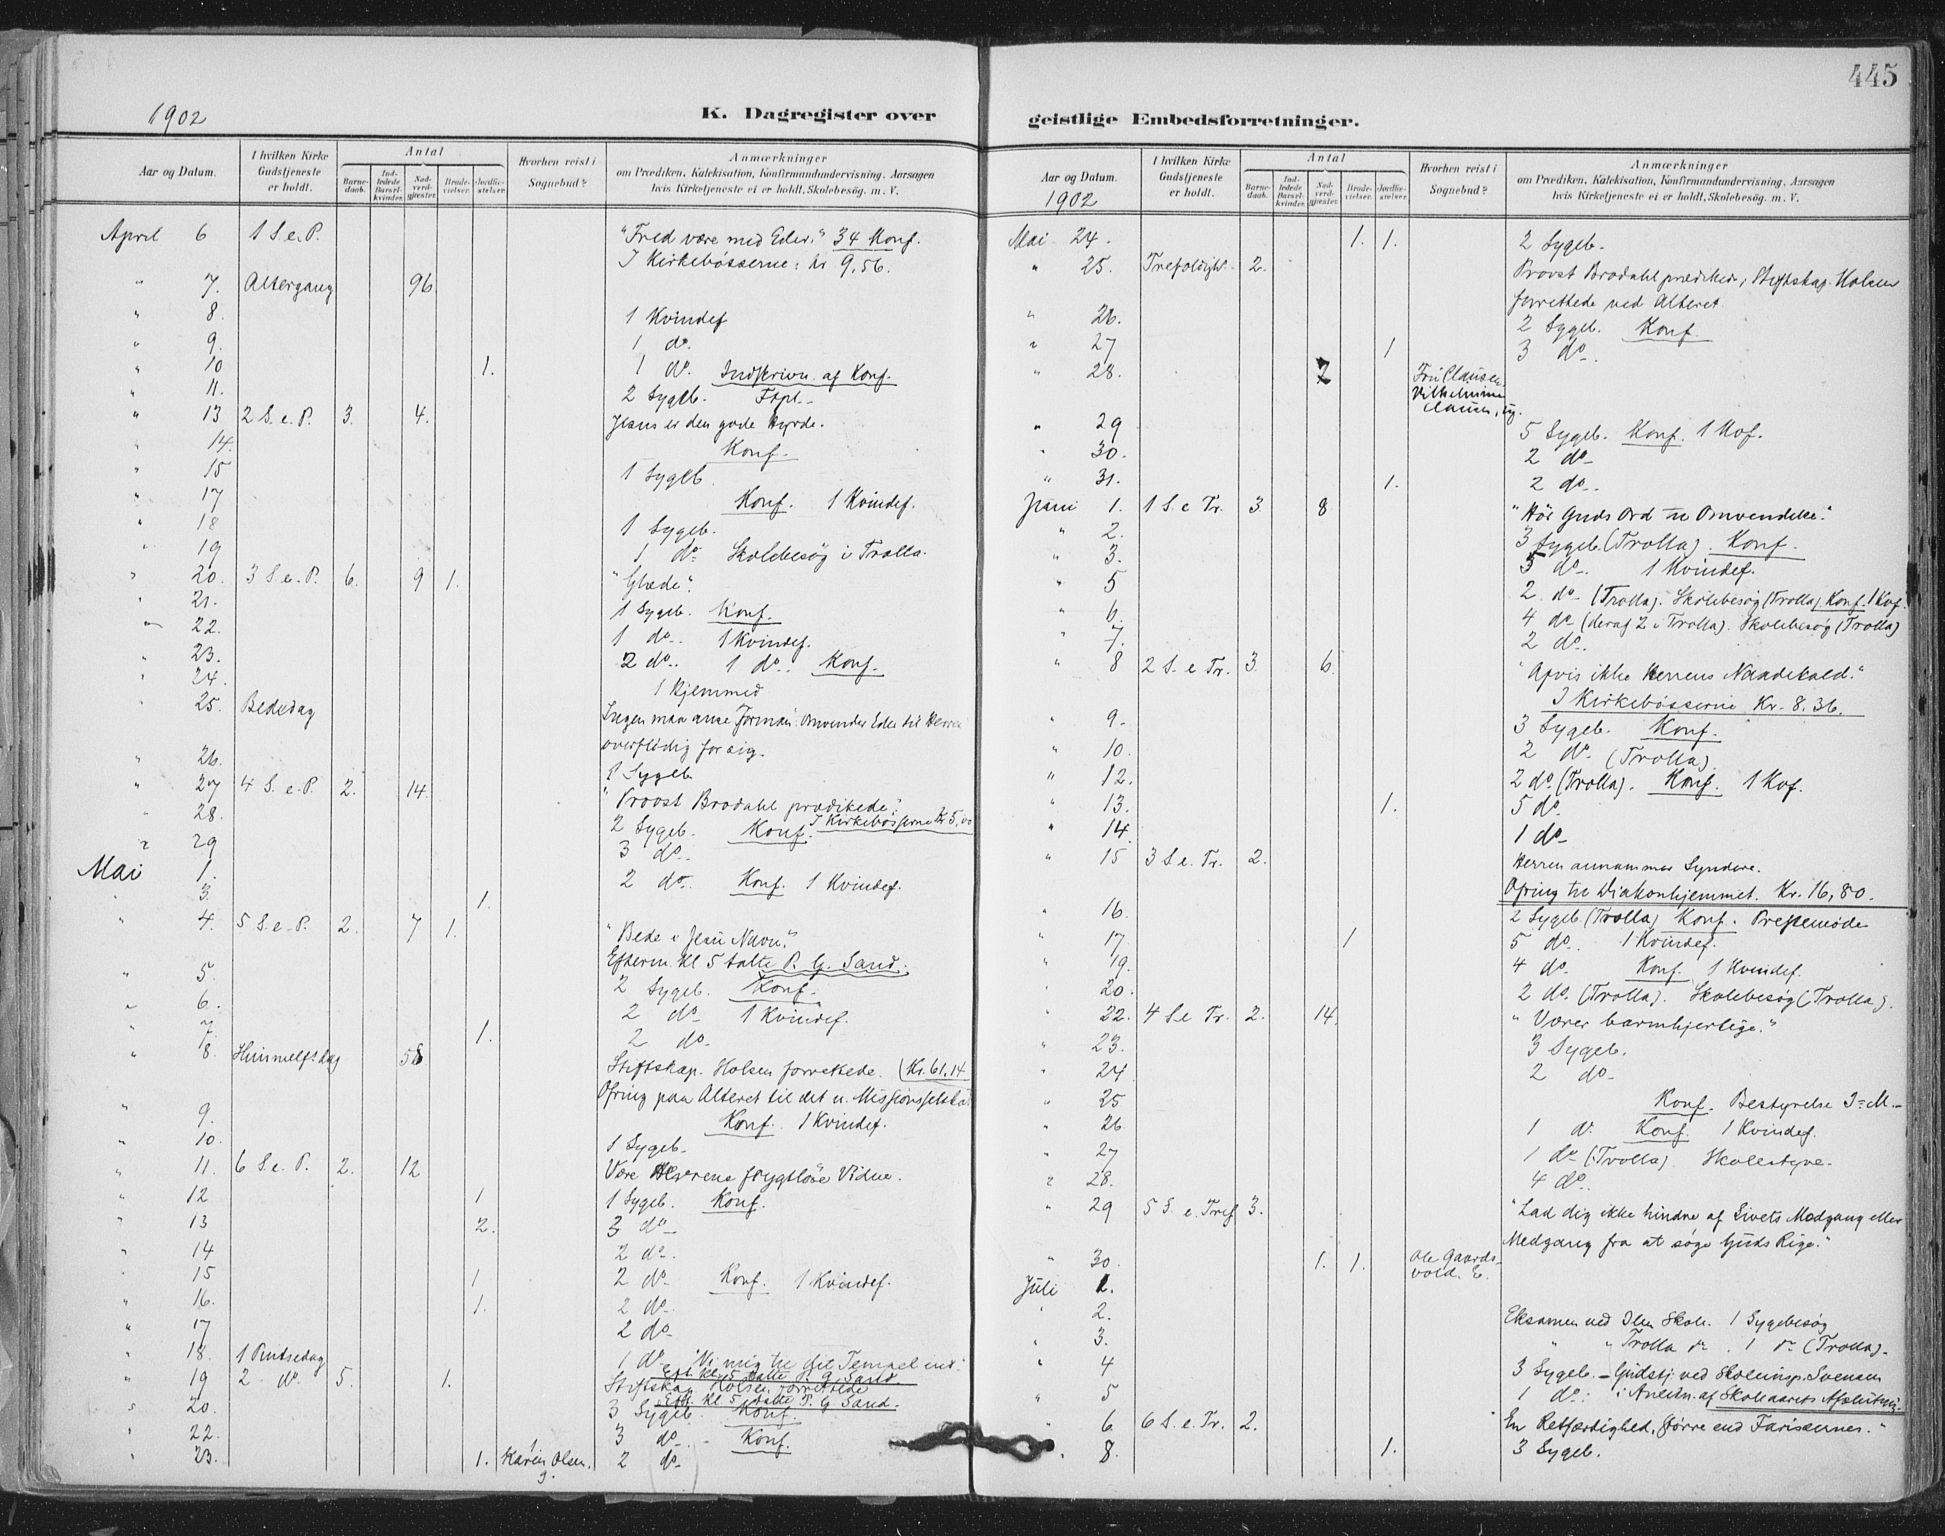 445
1902 K. Dagregister over
Aar og Datum. I hvilken Kirke Gudstjeneste er holdt. Antal Barnedaab. Indledede Barselkvinder. Nadverdgjester. Brudevielser. Jordfæstelser. Hvorhen reist i Sognebud? Anmærkninger
om Prædiken, Katekisation, Konfirmandundervisning, Aarsagen hvis Kirketjeneste ei er holdt, Skolebesøg. m. V.
April 6 1 S. e. P. "Fred være med Eder." 34 Konf.
I Kirkebøsserne: kr 9,56.
" 7. Altergang 96
" 8. 1 Kvindef
" 9. 1 do.
" 10 1. 1 do. Indskrivn. af Konf.
" 11. 2 Sygeb.
" 13 2 S. e. P. 3. 4. Jesus er den gode Hyrde.
" 14. Konf.
" 15 1 Sygeb
" 17 Konf. 1 Kvindef.
" 18 1 Sygeb.
" 19 1 do Skolebesøg i Trolla.
" 20. 3 S. e. P. 6. 9 1. "Glæde".
" 21. 1 Sygeb. Konf.
" 22. 1 do. 1 Kvindef.
" 23. 2 do. 1 do. Konf.
" 24. 1 Hjemmed
" 25. Bededag Ingen maa anse Forman: Omvender Eder til Herren
overflødig for sig.
" 26. 1 Sygeb
" 27 4 S. e. P. 2. 14. "Provst Brodahl prædikede".
I Kirkebøsserne Kr 5,00
" 28. 2 Sygeb. Konf.
" 29 3 do.
Mai 1. 2 do. Konf. 1 Kvindef.
" 3. 1.
" 4. 5 S. e. P. 2. 7 1. "Bede i Jesu Navn."
Efterm. kl 5 talte P. G. Sand.
" 5. 2 Sygeb. Konf.
" 6. 2 do 1 Kvindef.
" 7. 1. 2 do
" 8. Himmelfs.dag 58 Stiftskap. Holsen forrettede. (Kr. 61,14
Ofring paa Alteret til det n. Missionsselskab
" 9. Konf. 1 Kvindef.
" 10. 1 Sygeb.
" 11. 6 S. e. P. 2. 12 Vær Herrens frygtløse Vidne.
" 12 1 1 Sygeb. Konf.
" 13 2. 3 do
" 14 2 do.
" 15 1 2 do Konf. 1 Kvindef.
" 16. 1. 2 do.
" 17 2 do
" 18. 1 Pintsedag 1 do "Vi mig til dit Tempel ind."
Eft. kl. 5 talte P. G Sand.
" 19 2. do. 5. 1. Stiftskap. Holsen forrettede
Eft. kl 5 talte P. G Sand.
" 20. 3 Sygeb. Konf.
" 22. 3 do. Konf.
" 23. 1. Karen Olsen. 2 do
geistlige Embedsforretninger.
Aar og Datum. I hvilken Kirke Gudstjeneste er holdt. Antal Barnedaab. Indledede Barselkvinder. Nadverdgjester. Brudevielser. Jordfæstelser. Hvorhen reist i Sognebud? Anmærkninger
om Prædiken, Katekisation, Konfirmandundervisning, Aarsagen hvis Kirketjeneste ei er holdt, Skolebesøg. m. V.
1902
Mai 24. 1. 1. 2 Sygeb.
" 25. Trefoldigh. 2. Provst Brodahl prædikede, Stiftskap. Holsen
forrettede ved Alteret.
" 26. 2 Sygeb. Konf.
" 27 1 3 do.
" 28. 2 Fru Clausen
Vilhelmine
Clausen,
" 29 5 Sygeb. Konf. 1 Kvf.
" 30. 2 do
" 31. 1. 2 do.
Juni 1. 1 S. e Tr. 3 8 "Hør Guds Ord til Omvendelse."
" 2. 3 Sygeb (Trolla). Konf.
" 3. 3 do. 1 Kvindef.
" 5 2 do (Trolla). Skolebesøg (Trolla) Konf. 1 Kvf.
" 6. 4 do (deraf 2 i Trolla). Skolebesøg (Trolla)
" 7. 2 do.
" 8 2 S. e Tr. 3. 6. "Afvis ikke Herrens Naadekald."
I Kirkebøsserne Kr. 8.36.
" 9. 3 Sygeb. Konf.
" 10. 2 do (Trolla).
" 12. 2 do (Trolla). Konf. 1 Kvf.
" 13. 1. 5 do.
" 14. 1 do
" 15 3 S. e. Tr. 2. Herren annammer Syndere.
Ofring til Diakonhjemmet. Kr. 16,80.
" 16. 2 Sygeb. (Trolla) Konf. Prestemøde
" 17. 1 5 do. 1 Kvindef.
" 19. 4 do Konf. 1 Kvindef.
" 20. 2 do. (Trolla). Skolebesøg (Trolla).
" 22. 4 S. e Tr. 2. 14. "Værer barmhjertige."
" 23. 3 Sygeb.
" 24 2 do
" 25 Konf. Bestyrelse I=M.
" 26. 1 do. Konf. 1 Kvindef.
" 27 1 do (Trolla). Skolestyre.
" 28. 4 do.
" 29 5 S. e. Tref 3. "Lad dig ikke hindre af Livets Modgang eller
Medgang fra at søge Guds Rige."
" 30. 1. 1. Ole Gaards-
vold.
Juli 1.
" 2. Eksamen ved Ilen Skole. 1 Sygebesøg
" 3. " " Trolla do. 1 do (Trolla).
" 4 3 Sygeb. - Gudstj. ved Skoleinsp. Svensen
" 5 1 do: i Anledn. af Skoleaarets Afslutning
" 6. 6 S. e. Tr. 2. "En Retfærdighed, større end Farisæernes."
" 8. 1. 3 Sygeb.